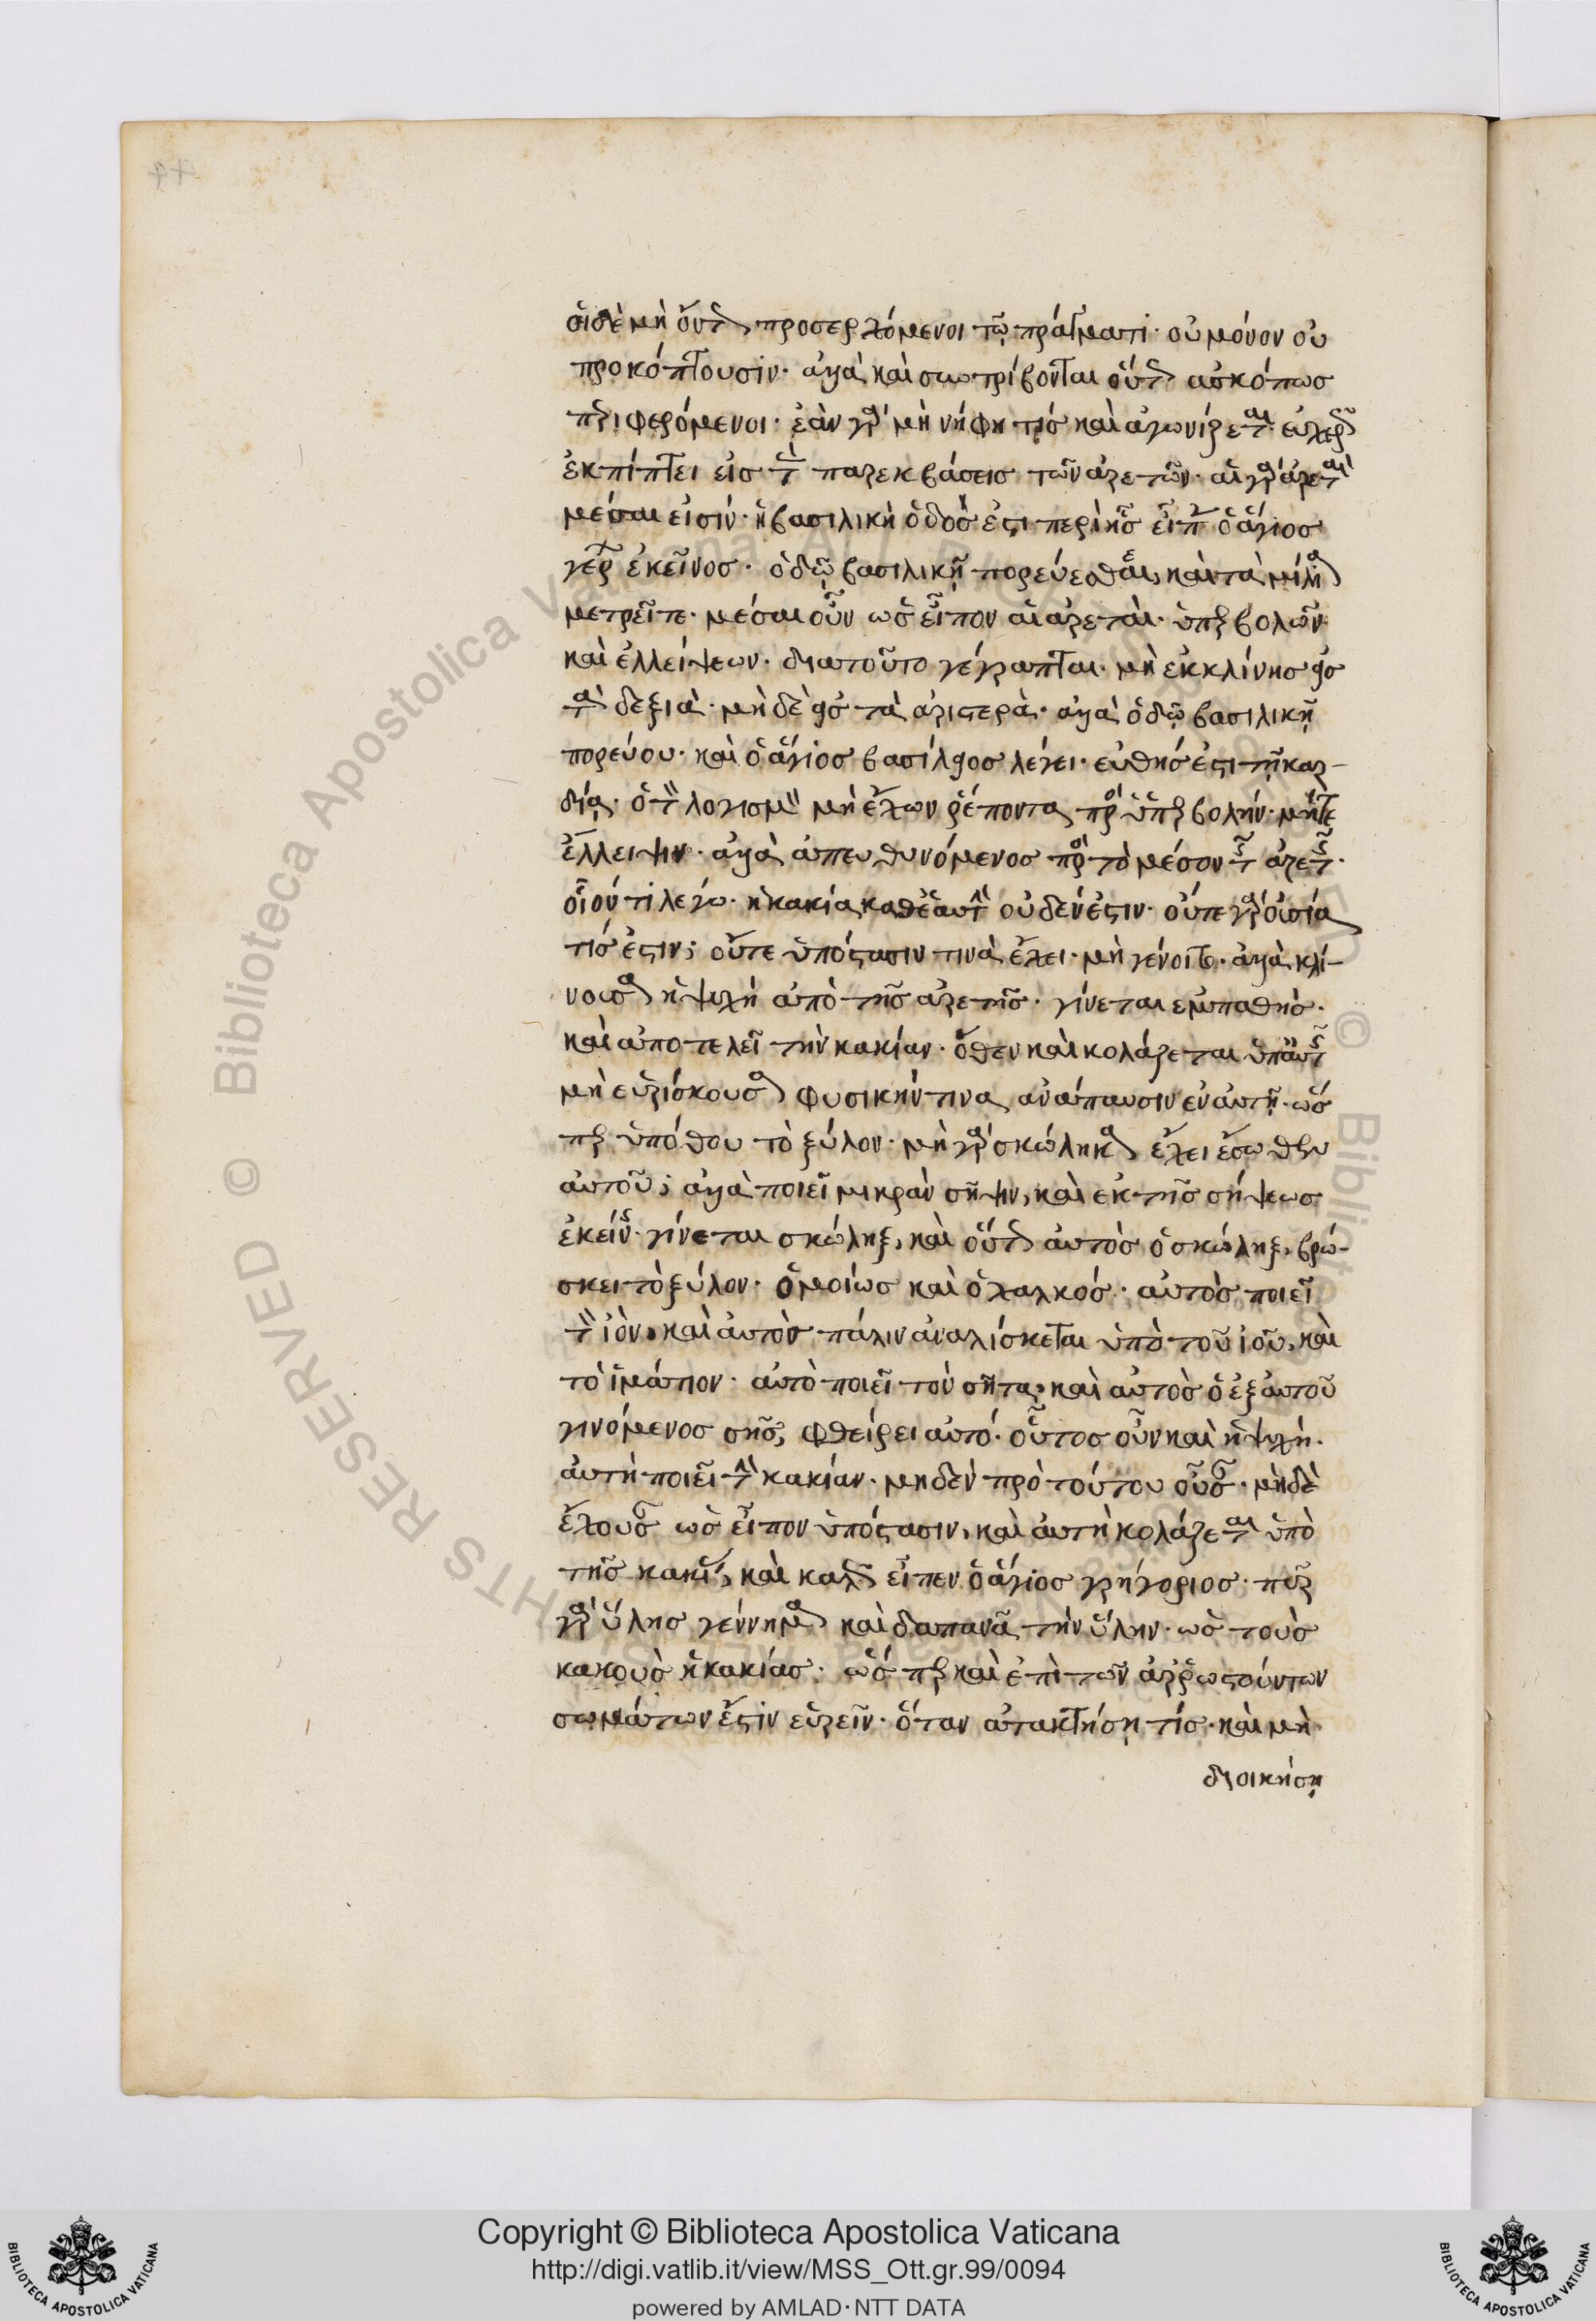 οἱ δὲ μὴ οὕτως προσερχόμενοι τῷ πράγματι· οὐ μόνον οὐ
προκόπτουσιν· ἀλλὰ καὶ συντρίβονται οὕτως ἀσκόπως
περιφερόμενοι· ἐὰν γὰρ μὴ νήφη τὶς καὶ ἀγωνίζεται· εὐχερῶς
ἐκπίπτει εἰς τὰς παρεκβάσεις τῶν ἀρετῶν· αἱ γὰρ ἀρεταὶ
μέσαι εἰσίν· ἡ βασιλικὴ ὁδός ἐστι περὶ ἧς εἶπεν ὁ ἅγιος
γέρων ἐκεῖνος· ὁδῷ βασιλικῇ πορεύεσθαι, καὶ τὰ μίλια
μετρεῖτε· μέσαι οὖν ὡς εἶπον αἱ ἀρεταὶ· ὑπερβολῶν
καὶ ἐλλείψεων· διατοῦτο γέγραπται· μὴ ἐκκλίνης εἰς
τὰ δεξιὰ· μὴ δὲ εἰς τὰ ἀριστερὰ· ἀλλὰ ὁδῷ βασιλικῇ
πορεύου· καὶ ὁ ἅγιος βασίλειος λέγει· εὐθής ἐστι τῇ καρ-
δίᾳ· ὁ τὸν λογισμὸν μὴ ἔχων ῥέποντα πρὸς ὑπερβολήν· μήτε
ἔλλειψιν· ἀλλὰ ἀπευθυνόμενος πρὸς τὸ μέσον τῆς ἀρετῆς·
οἷόν τι λέγω· ἡ κακία καθ' ἑαυτὴν οὐδέν ἐστιν· οὔτε γὰρ οὐσία
τίς ἐστιν; οὔτε ὑπόστασιν τινὰ ἔχει· μὴ γένοιτο· ἀλλὰ κλί-
νουσα ἡ ψυχὴ ἀπὸ τῆς ἀρετῆς· γίνεται ἐμπαθὴς·
καὶ ἀποτελεῖ τὴν κακίαν· ὅθεν καὶ κολάζεται ὑπ' αὐτῆς
μὴ εὑρίσκουσα φυσικήν τινα ἀνάπαυσιν ἐν αὐτῇ· ὥς
περ ὑπόθου τὸ ξύλον· μὴ γὰρ σκώληκα ἔχει ἔσωθεν
αὐτοῦ; ἀλλὰ ποιεῖ μικρὰν σῆψιν, καὶ ἐκ τῆς σήψεως
ἐκείνης· γίνεται σκώληξ, καὶ οὕτως αὐτὸς ὁ σκώληξ, βρώ-
σκει τὸ ξύλον· ὁμοίως καὶ ὁ χαλκός· αὐτὸς ποιεῖ
τὸν ἰὸν, καὶ αὐτὸς πάλιν ἀναλίσκεται ὑπὸ τοῦ ἰοῦ, καὶ
τὸ ἱμάτιον· αὐτὸ ποιεῖ τὸν σῆτα, καὶ αὐτὸς ὁ ἐξ αὐτοῦ
γινόμενος σῆς, φθείρει αὐτό· οὗτος οὖν καὶ ἡ ψυχή·
αὐτὴ ποιεῖ τὴν κακίαν· μηδὲν πρὸ τούτου οὖσαν· μὴδὲ
ἔχουσαν ὡς εἶπον ὑπόστασιν, καὶ αὐτὴ κολάζεται ὑπὸ
τῆς κακίας, καὶ καλῶς εἶπεν ὁ ἅγιος γρηγόριος· πῦρ
γὰρ ὕλης γέννημα καὶ δαπανᾶ τὴν ὕλην· ὡς τοὺς
κακοὺς ἡ κακίας· ὥς περ καὶ ἐπὶ τῶν ἀρρωστούντων
σωμάτων ἔστιν εὑρεῖν· ὅταν ἀτακτήσῃ τίς· καὶ μὴ
διοικήσῃ
Copyright © Biblioteca Apostolica Vaticana
http://digi.vatlib.it/view/MSS_Ott.gr.99/0094
powered by AMLAD·NTT DATA